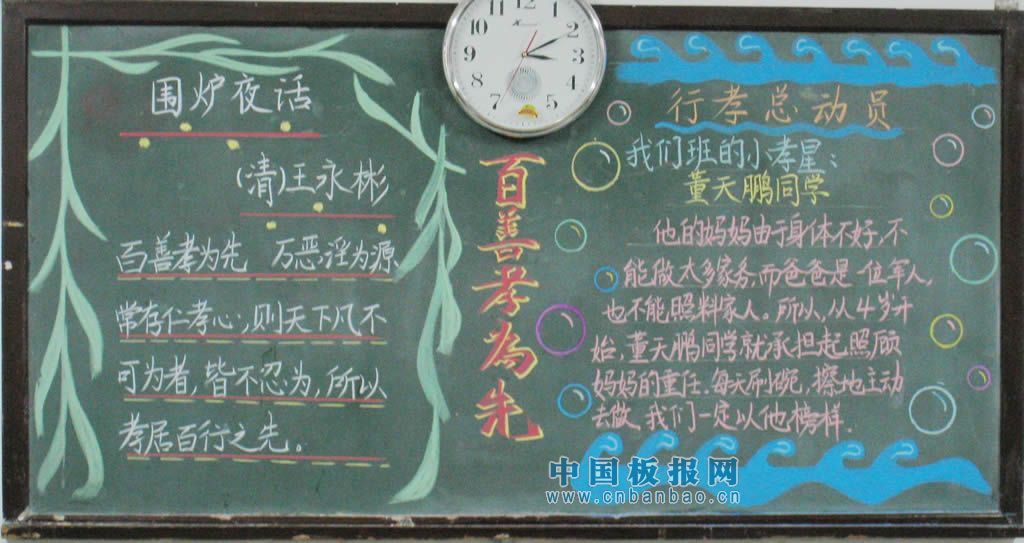 围炉夜话
(清)王永彬
百善孝为先 万恶淫为源
常存仁孝心,则天下凡不
可为者,皆不忍为,所以
孝居百行之先。
10 11 1 2 3 4 5 7 8 9
百善孝為先
行孝总动员
我们班的小孝星:
董天鹏同学
他的妈妈由于身体不好,不
能做太多家务,而爸爸是一位军人,
也不能照料家人。所以,从4岁开
始,董天鹏同学就承担起照顾
妈妈的重任.每天刷碗,擦地主动
去做.我们一定以他榜样.
中国板报网
www.cnbanbao.cn